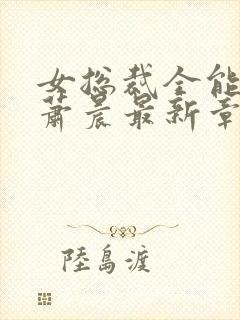 女总裁全能
萧晨最新章
陸島渡